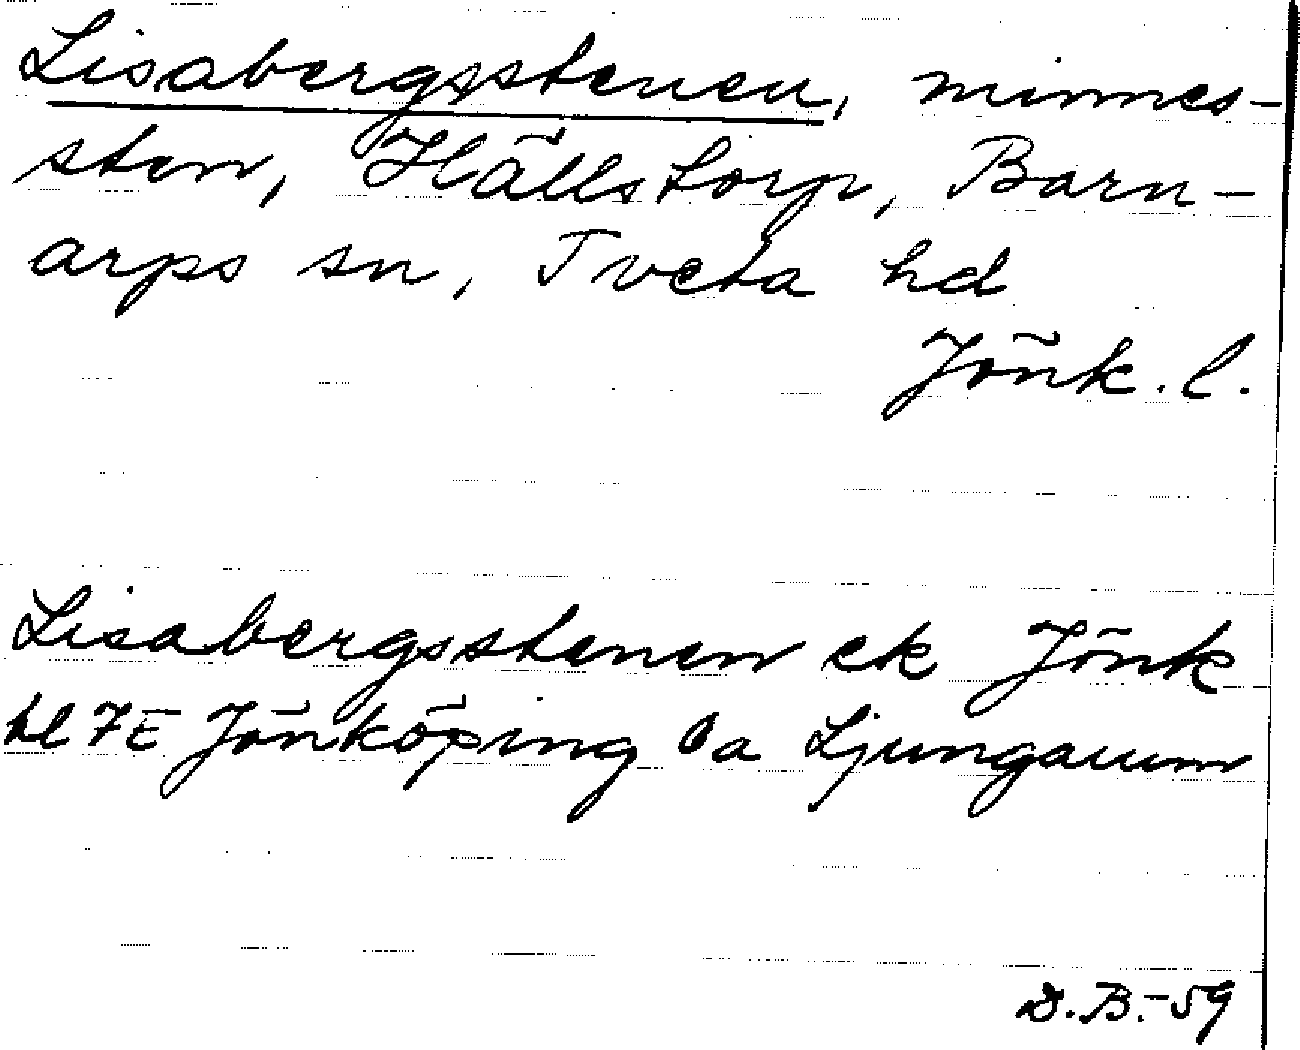 Lisabergsstenen, minnes-
sten, Hällstorp, Barn-
arps sn, Tveta hd
Jönk. l.
Lisabergsstenen ek Jönk
bl 7E Jönköping Öa Ljungarum
D.B.-59